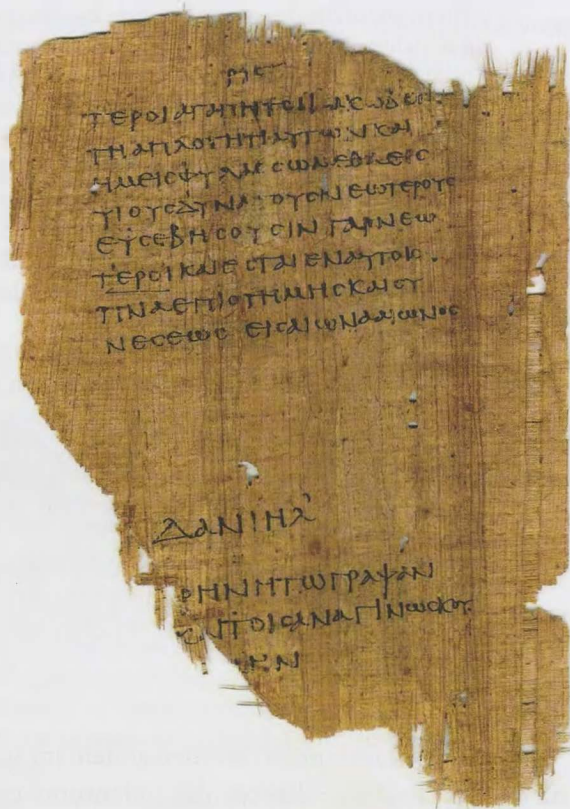 ΡϤϚ
ΤΕΡΟΙΑΓΑΠΗΤΟΙΙΑΚΩΒΕΝ
ΤΗΑΠΛΟΤΗΤΙΑΥΤΩΝΚΑΙ
ΗΜΕΙϹΦΥΛΑϹϹΩΜΕΘΑΕΙϹ
ΥΙΟΥϹΔΥΝΑΤΟΥϹΝΕΩΤΕΡΟΥϹ
ΕΥϹΕΒΗϹΟΥϹΙΝΓΑΡΝΕΩ
ΤΕΡΟΙΚΑΙΕϹΤΑΙΕΝΑΥΤΟΙϹ
ΠΝΑΕΠΙϹΤΗΜΗϹΚΑΙϹΥ
ΝΕϹΕΩϹ ΕΙϹΑΙΩΝΑΑΙΩΝΟϹ
ΔΑΝΙΗΛ
ΡΗΝΗΤΩΓΡΑΨΑΝ
ΙΤΟΙϹΑΝΑΓΙΝΩϹΚΟΥ
ΗΝ